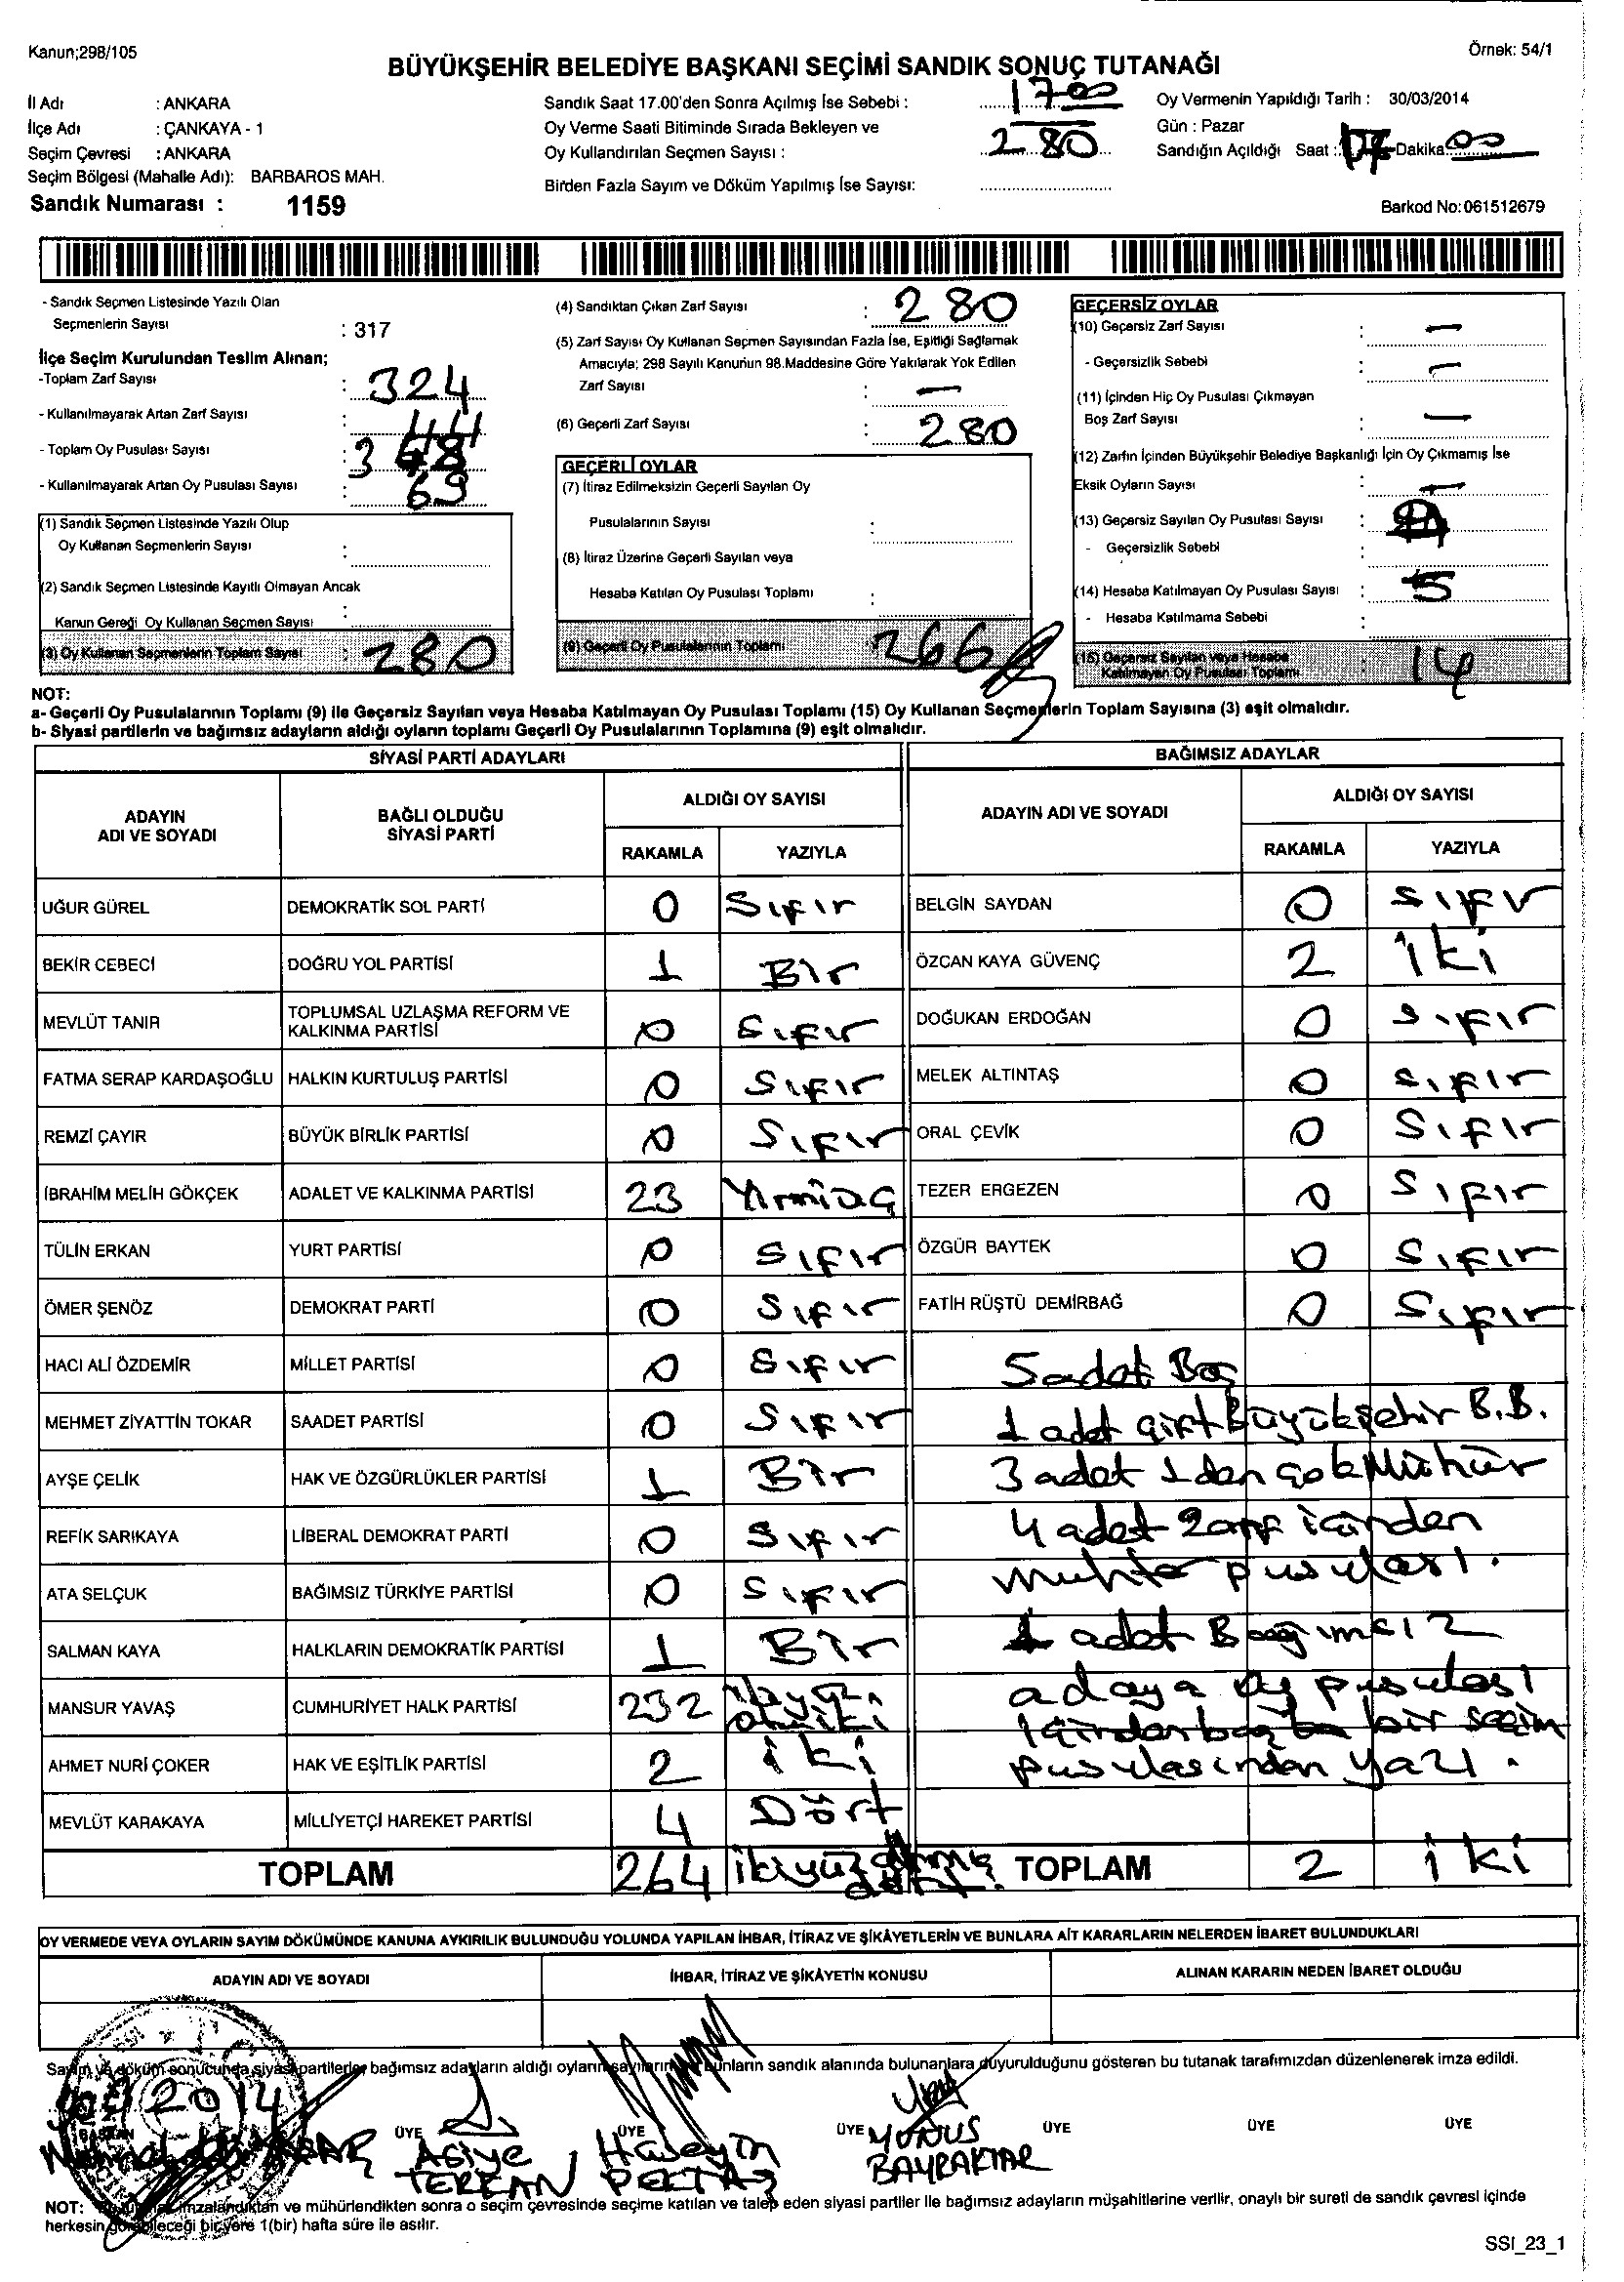 Kanun;298/105
Örnek: 54/1
BÜYÜKŞEHİR BELEDİYE BAŞKANI SEÇİMİ SANDIK SONUÇ TUTANAĞI
İl Adı : ANKARA
İlçe Adı : ÇANKAYA - 1
Seçim Çevresi : ANKARA
Seçim Bölgesi (Mahalle Adı): BARBAROS MAH.
Sandık Numarası : 1159
Sandık Saat 17.00'den Sonra Açılmış İse Sebebi : 1700
Oy Verme Saati Bitiminde Sırada Bekleyen ve
Oy Kullandırılan Seçmen Sayısı : 280
Birden Fazla Sayım ve Döküm Yapılmış İse Sayısı:
Oy Vermenin Yapıldığı Tarih : 30/03/2014
Gün : Pazar
Sandığın Açıldığı Saat : 17 Dakika 00
Barkod No:061512679
- Sandık Seçmen Listesinde Yazılı Olan
Seçmenlerin Sayısı : 317
İlçe Seçim Kurulundan Teslim Alınan;
-Toplam Zarf Sayısı : 324
- Kullanılmayarak Artan Zarf Sayısı : 44
- Toplam Oy Pusulası Sayısı :
- Kullanılmayarak Artan Oy Pusulası Sayısı : 69
(1) Sandık Seçmen Listesinde Yazılı Olup
Oy Kullanan Seçmenlerin Sayısı :
(2) Sandık Seçmen Listesinde Kayıtlı Olmayan Ancak
Kanun Gereği Oy Kullanan Seçmen Sayısı :
(3) Oy Kullanan Seçmenlerin Toplam Sayısı : 280
(4) Sandıktan Çıkan Zarf Sayısı : 280
(5) Zarf Sayısı Oy Kullanan Seçmen Sayısından Fazla İse, Eşitliği Sağlamak
Amacıyla; 298 Sayılı Kanunun 98.Maddesine Göre Yakılarak Yok Edilen
Zarf Sayısı : —
(6) Geçerli Zarf Sayısı : 280
GEÇERLİ OYLAR
(7) İtiraz Edilmeksizin Geçerli Sayılan Oy
Pusulalarının Sayısı :
(8) İtiraz Üzerine Geçerli Sayılan veya
Hesaba Katılan Oy Pusulası Toplamı :
(9) Geçerli Oy Pusulalarının Toplamı : 266
GEÇERSİZ OYLAR
(10) Geçersiz Zarf Sayısı : —
- Geçersizlik Sebebi : —
(11) İçinden Hiç Oy Pusulası Çıkmayan
Boş Zarf Sayısı : —
(12) Zarfın İçinden Büyükşehir Belediye Başkanlığı İçin Oy Çıkmamış İse
Eksik Oyların Sayısı : —
(13) Geçersiz Sayılan Oy Pusulası Sayısı :
- Geçersizlik Sebebi :
(14) Hesaba Katılmayan Oy Pusulası Sayısı : 5
- Hesaba Katılmama Sebebi :
(15) Geçersiz Sayılan veya Hesaba
Katılmayan Oy Pusulası Toplamı : 14
NOT:
a- Geçerli Oy Pusulalarının Toplamı (9) ile Geçersiz Sayılan veya Hesaba Katılmayan Oy Pusulası Toplamı (15) Oy Kullanan Seçmenlerin Toplam Sayısına (3) eşit olmalıdır.
b- Siyasi partilerin ve bağımsız adayların aldığı oyların toplamı Geçerli Oy Pusulalarının Toplamına (9) eşit olmalıdır.
SİYASİ PARTİ ADAYLARI
ADAYIN ADI VE SOYADI
BAĞLI OLDUĞU SİYASİ PARTİ
ALDIĞI OY SAYISI
RAKAMLA YAZIYLA
UĞUR GÜREL DEMOKRATİK SOL PARTİ 0 Sıfır
BEKİR CEBECİ DOĞRU YOL PARTİSİ 1 Bir
MEVLÜT TANIR TOPLUMSAL UZLAŞMA REFORM VE KALKINMA PARTİSİ 0 Sıfır
FATMA SERAP KARDAŞOĞLU HALKIN KURTULUŞ PARTİSİ 0 Sıfır
REMZİ ÇAYIR BÜYÜK BİRLİK PARTİSİ 0 Sıfır
İBRAHİM MELİH GÖKÇEK ADALET VE KALKINMA PARTİSİ 23 Yirmiüç
TÜLİN ERKAN YURT PARTİSİ 0 Sıfır
ÖMER ŞENÖZ DEMOKRAT PARTİ 0 Sıfır
HACI ALİ ÖZDEMİR MİLLET PARTİSİ 0 Sıfır
MEHMET ZİYATTİN TOKAR SAADET PARTİSİ 0 Sıfır
AYŞE ÇELİK HAK VE ÖZGÜRLÜKLER PARTİSİ 1 Bir
REFİK SARIKAYA LİBERAL DEMOKRAT PARTİ 0 Sıfır
ATA SELÇUK BAĞIMSIZ TÜRKİYE PARTİSİ 0 Sıfır
SALMAN KAYA HALKLARIN DEMOKRATİK PARTİSİ 1 Bir
MANSUR YAVAŞ CUMHURİYET HALK PARTİSİ 232 ikiyüz otuziki
AHMET NURİ ÇOKER HAK VE EŞİTLİK PARTİSİ 2 iki
MEVLÜT KARAKAYA MİLLİYETÇİ HAREKET PARTİSİ 4 Dört
TOPLAM 264 ikiyüz altmış dört
BAĞIMSIZ ADAYLAR
ADAYIN ADI VE SOYADI
ALDIĞI OY SAYISI
RAKAMLA YAZIYLA
BELGİN SAYDAN 0 Sıfır
ÖZCAN KAYA GÜVENÇ 2 iki
DOĞUKAN ERDOĞAN 0 Sıfır
MELEK ALTINTAŞ 0 Sıfır
ORAL ÇEVİK 0 Sıfır
TEZER ERGEZEN 0 Sıfır
ÖZGÜR BAYTEK 0 Sıfır
FATİH RÜŞTÜ DEMİRBAĞ 0 Sıfır
5 adet Boş
1 adet çift Büyükşehir B.B.
3 adet 1 den çok Mühür
4 adet zarf içinden
muhtar pusulası.
1 adet Bağımsız
adaya oy pusulası
içinden bir seçim
pusulasından yazı.
TOPLAM 2 iki
OY VERMEDE VEYA OYLARIN SAYIM DÖKÜMÜNDE KANUNA AYKIRILIK BULUNDUĞU YOLUNDA YAPILAN İHBAR, İTİRAZ VE ŞİKÂYETLERİN VE BUNLARA AİT KARARLARIN NELERDEN İBARET BULUNDUKLARI
ADAYIN ADI VE SOYADI
İHBAR, İTİRAZ VE ŞİKÂYETİN KONUSU
ALINAN KARARIN NEDEN İBARET OLDUĞU
Sayım ve döküm sonucunda siyasi partilerler bağımsız adayların aldığı oyların sayılarını bunların sandık alanında bulunanlara duyurulduğunu gösteren bu tutanak tarafımızdan düzenlenerek imza edildi.
2014
BAŞKAN ÜYE ÜYE ÜYE ÜYE ÜYE ÜYE
Asiye TERKAN
Hüseyin PEKTAŞ
YUNUS BAYRAKTAR
NOT: imzalandıktan ve mühürlendikten sonra o seçim çevresinde seçime katılan ve talep eden siyasi partiler ile bağımsız adayların müşahitlerine verilir, onaylı bir sureti de sandık çevresi içinde
herkesin görebileceği bir yere 1(bir) hafta süre ile asılır.
SSI_23_1